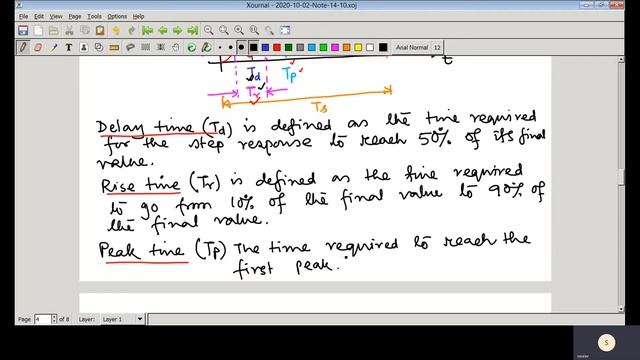 Xournal - 2020-10-02-Note-14-10.xoj
File Edit View Journal Tools Options Help
Arial Normal 12
Td Tp t
Tr
Ts
Delay time (Td) is defined as the time required
for the step response to reach 50% of its final
value.
Rise time (Tr) is defined as the time required
to go from 10% of the final value to 90% of
the final value.
Peak time (Tp) The time required to reach the
first peak.
Page 4 of 8 Layer: Layer 1
S